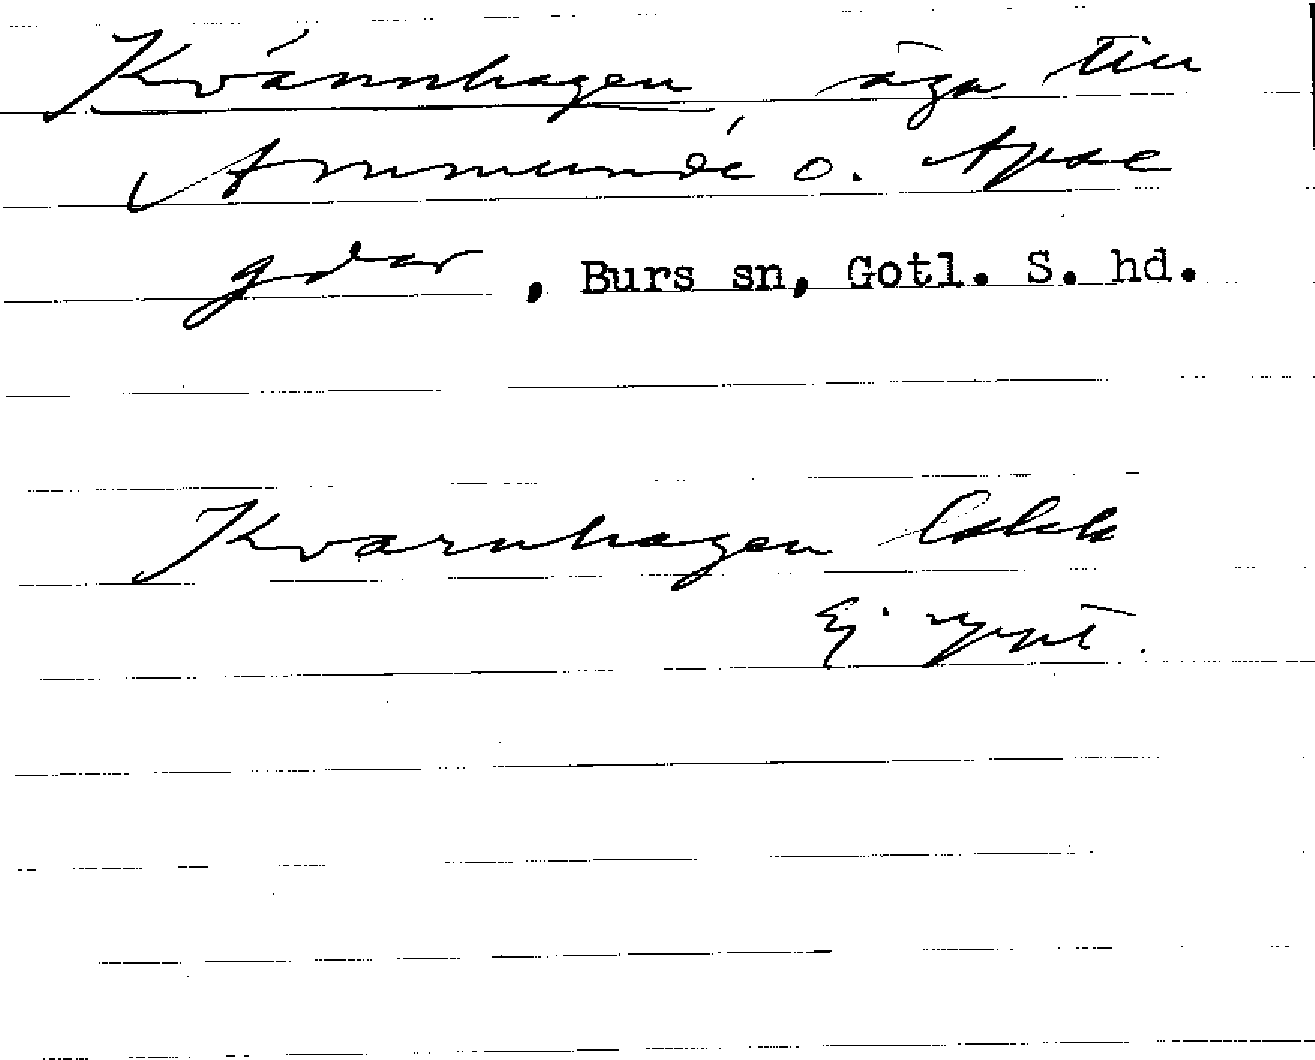 Kvánnhagen äga till
Ammunde o. Apse
gdar, Burs sn, Gotl. S. hd.
Kvarnhagen
Ej uppt.